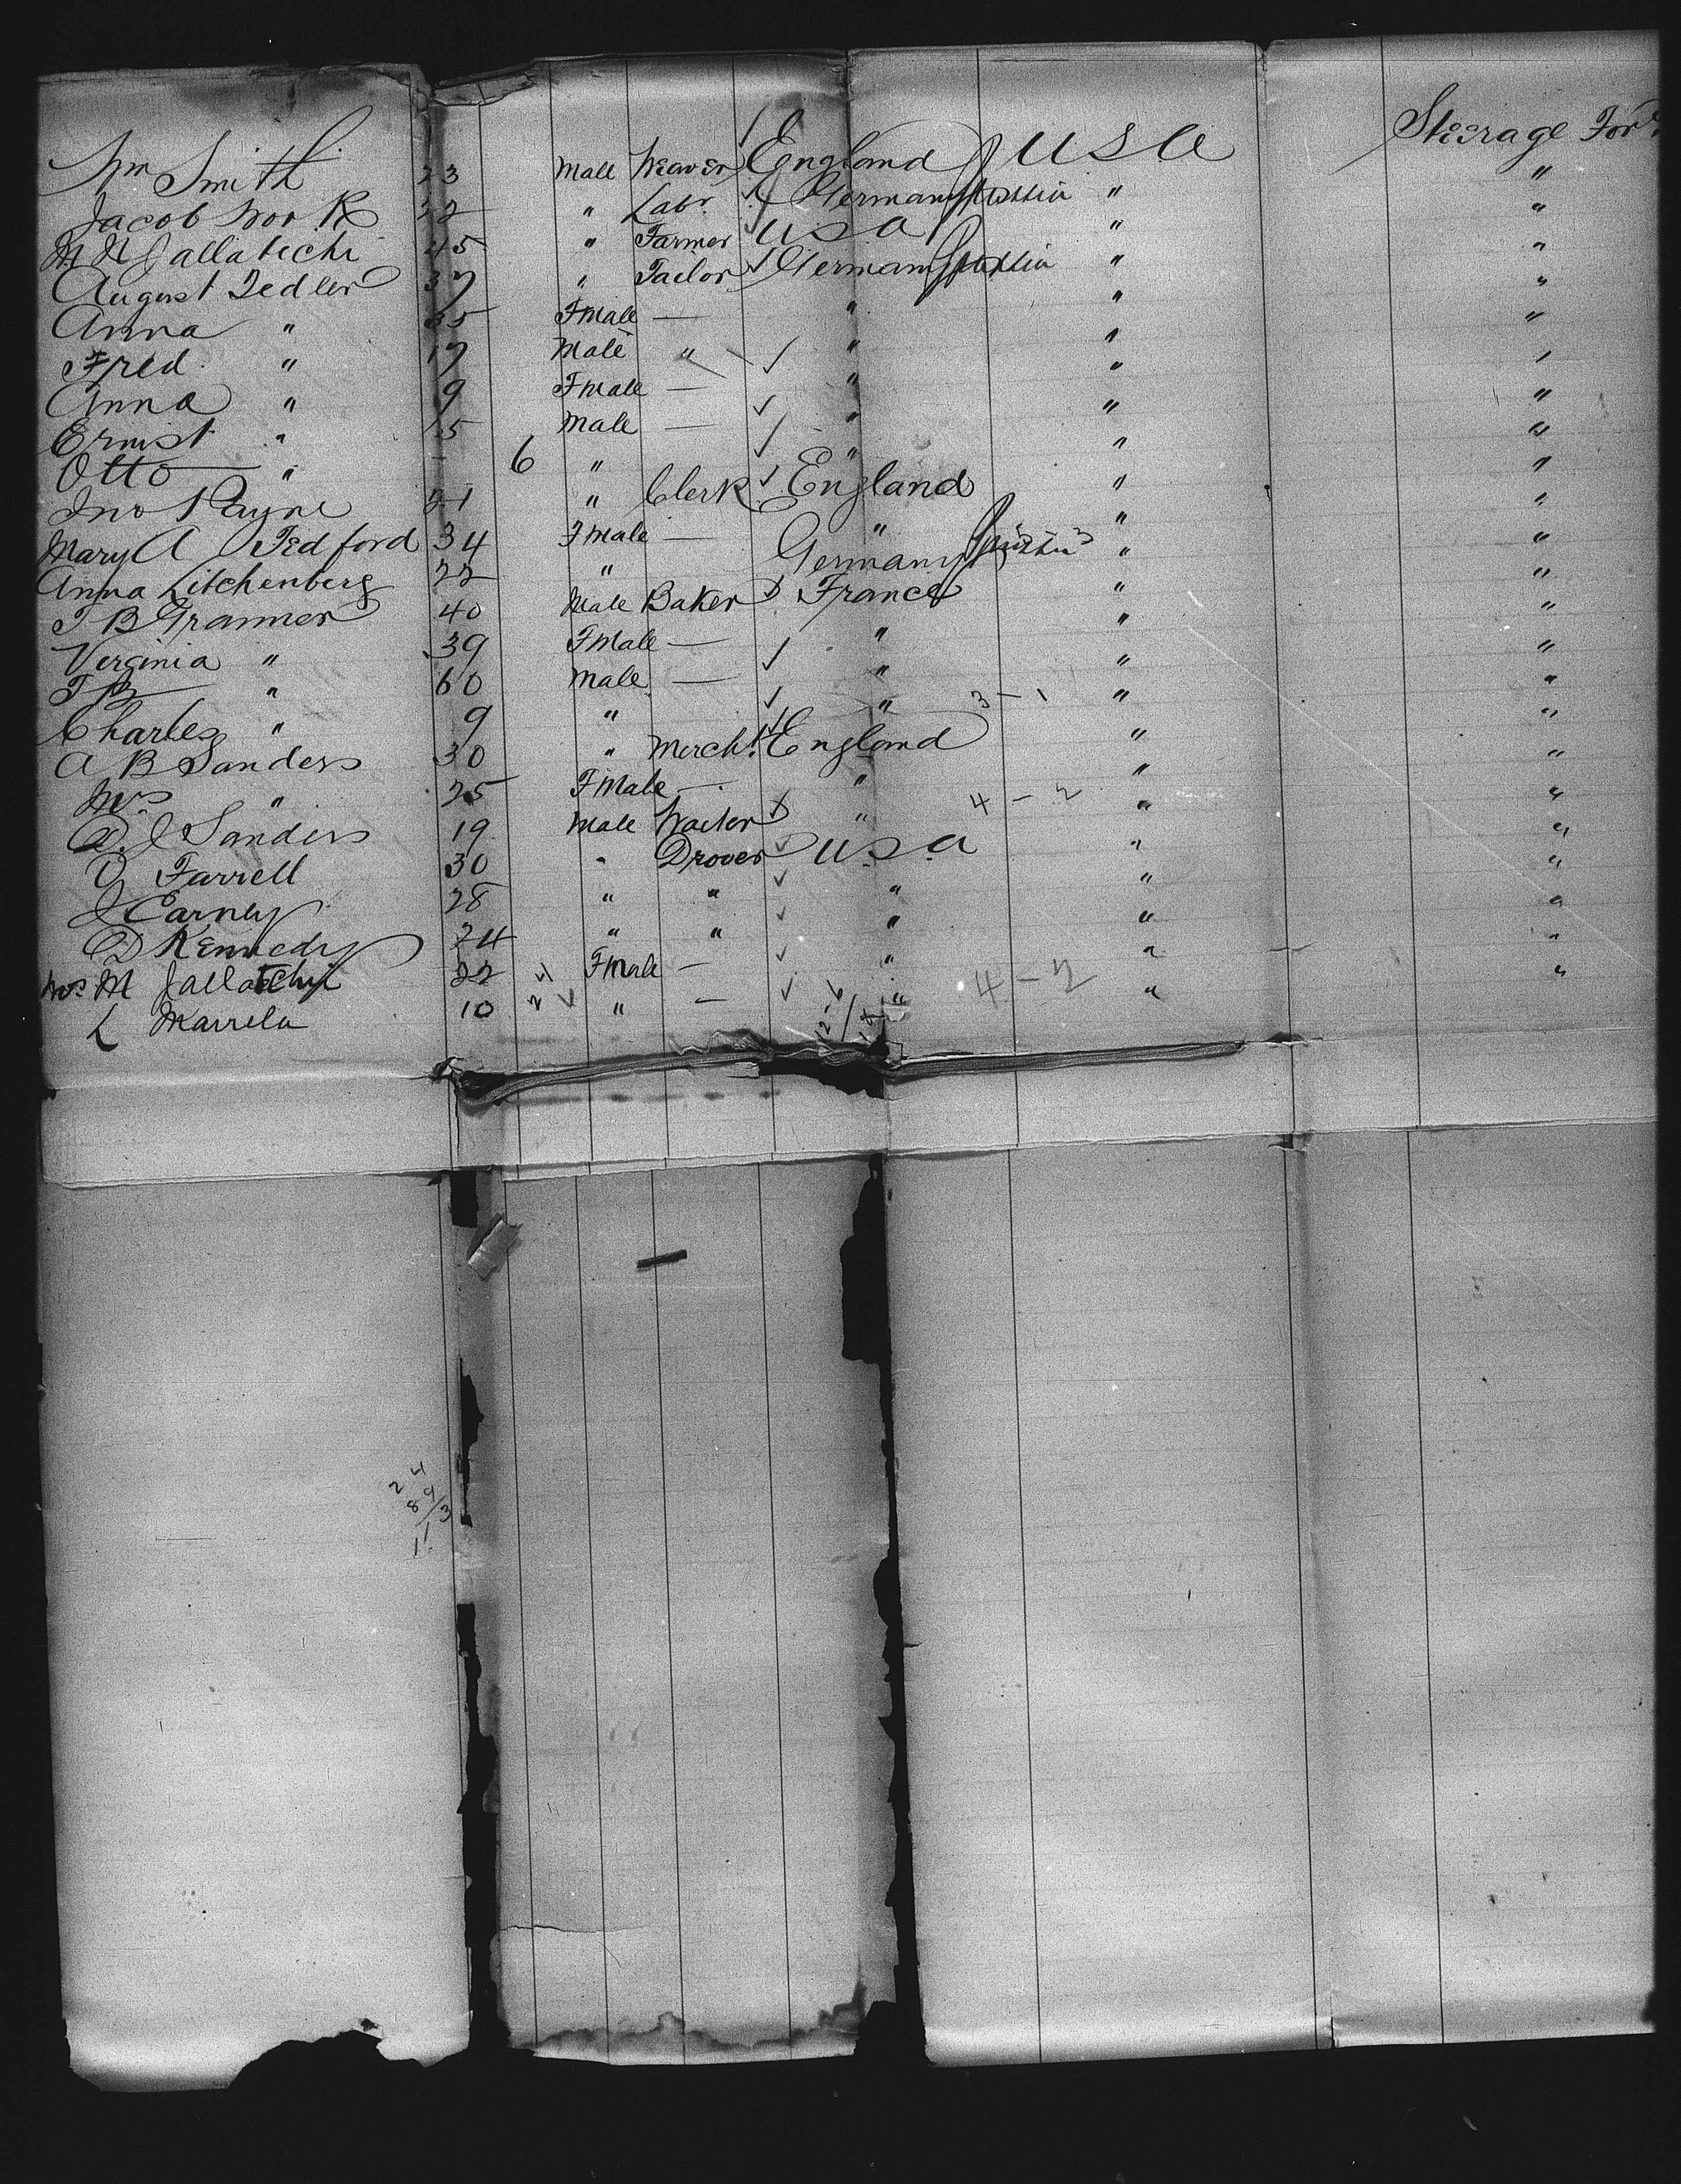 Wm Smith 23 Male Weaver England USA Steerage For^d
Jacob Work 22 " Labr. Germany Prussia " "
M N Jallatechi 45 " Farmer USA " "
August Tedler 37 " Tailor Germany Prussia " "
Anna " 35 FMale — " " "
Fred. " 17 Male " " " "
Anna " 9 FMale — " " "
Ernist " 15 Male — " " "
Otto " 6 " " " "
Jno Payne 21 " Clerk England " "
Mary A Tedford 34 FMale — " " "
Anna Litchenberg 22 " Germany Prussia " "
T B Grammer 40 Male Baker France " "
Verginia " 39 FMale — " " "
T B " 60 Male — " " "
Charles " 9 " " 3 – 1 " "
A B Sanders 30 " Mercht. England " "
Mrs " 25 FMale — " " "
A. J Sanders 19 Male Waiter " 4 – 2 " "
Farrell 30 " Drover U.S.A " "
J Carney 28 " " " " "
D Kennedy 24 " " " " "
Mrs M Jallatchi 22 FMale — " " "
L Marrela 10 24 " — " 4 – 2 " "
12-6
18
24
89/3
11